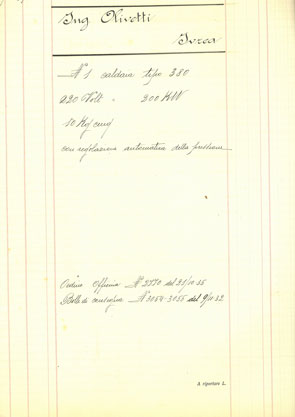 Ing Olivetti
Ivrea
N 1 caldaia tipo 330
220 Volt - 300 KW
10 Kg/cmq
con regolazione automatica della pressione
Ordine Officina N° 2770 del
Bolle di consegna N 3054-3055 del 9/10/32
A riportare L.